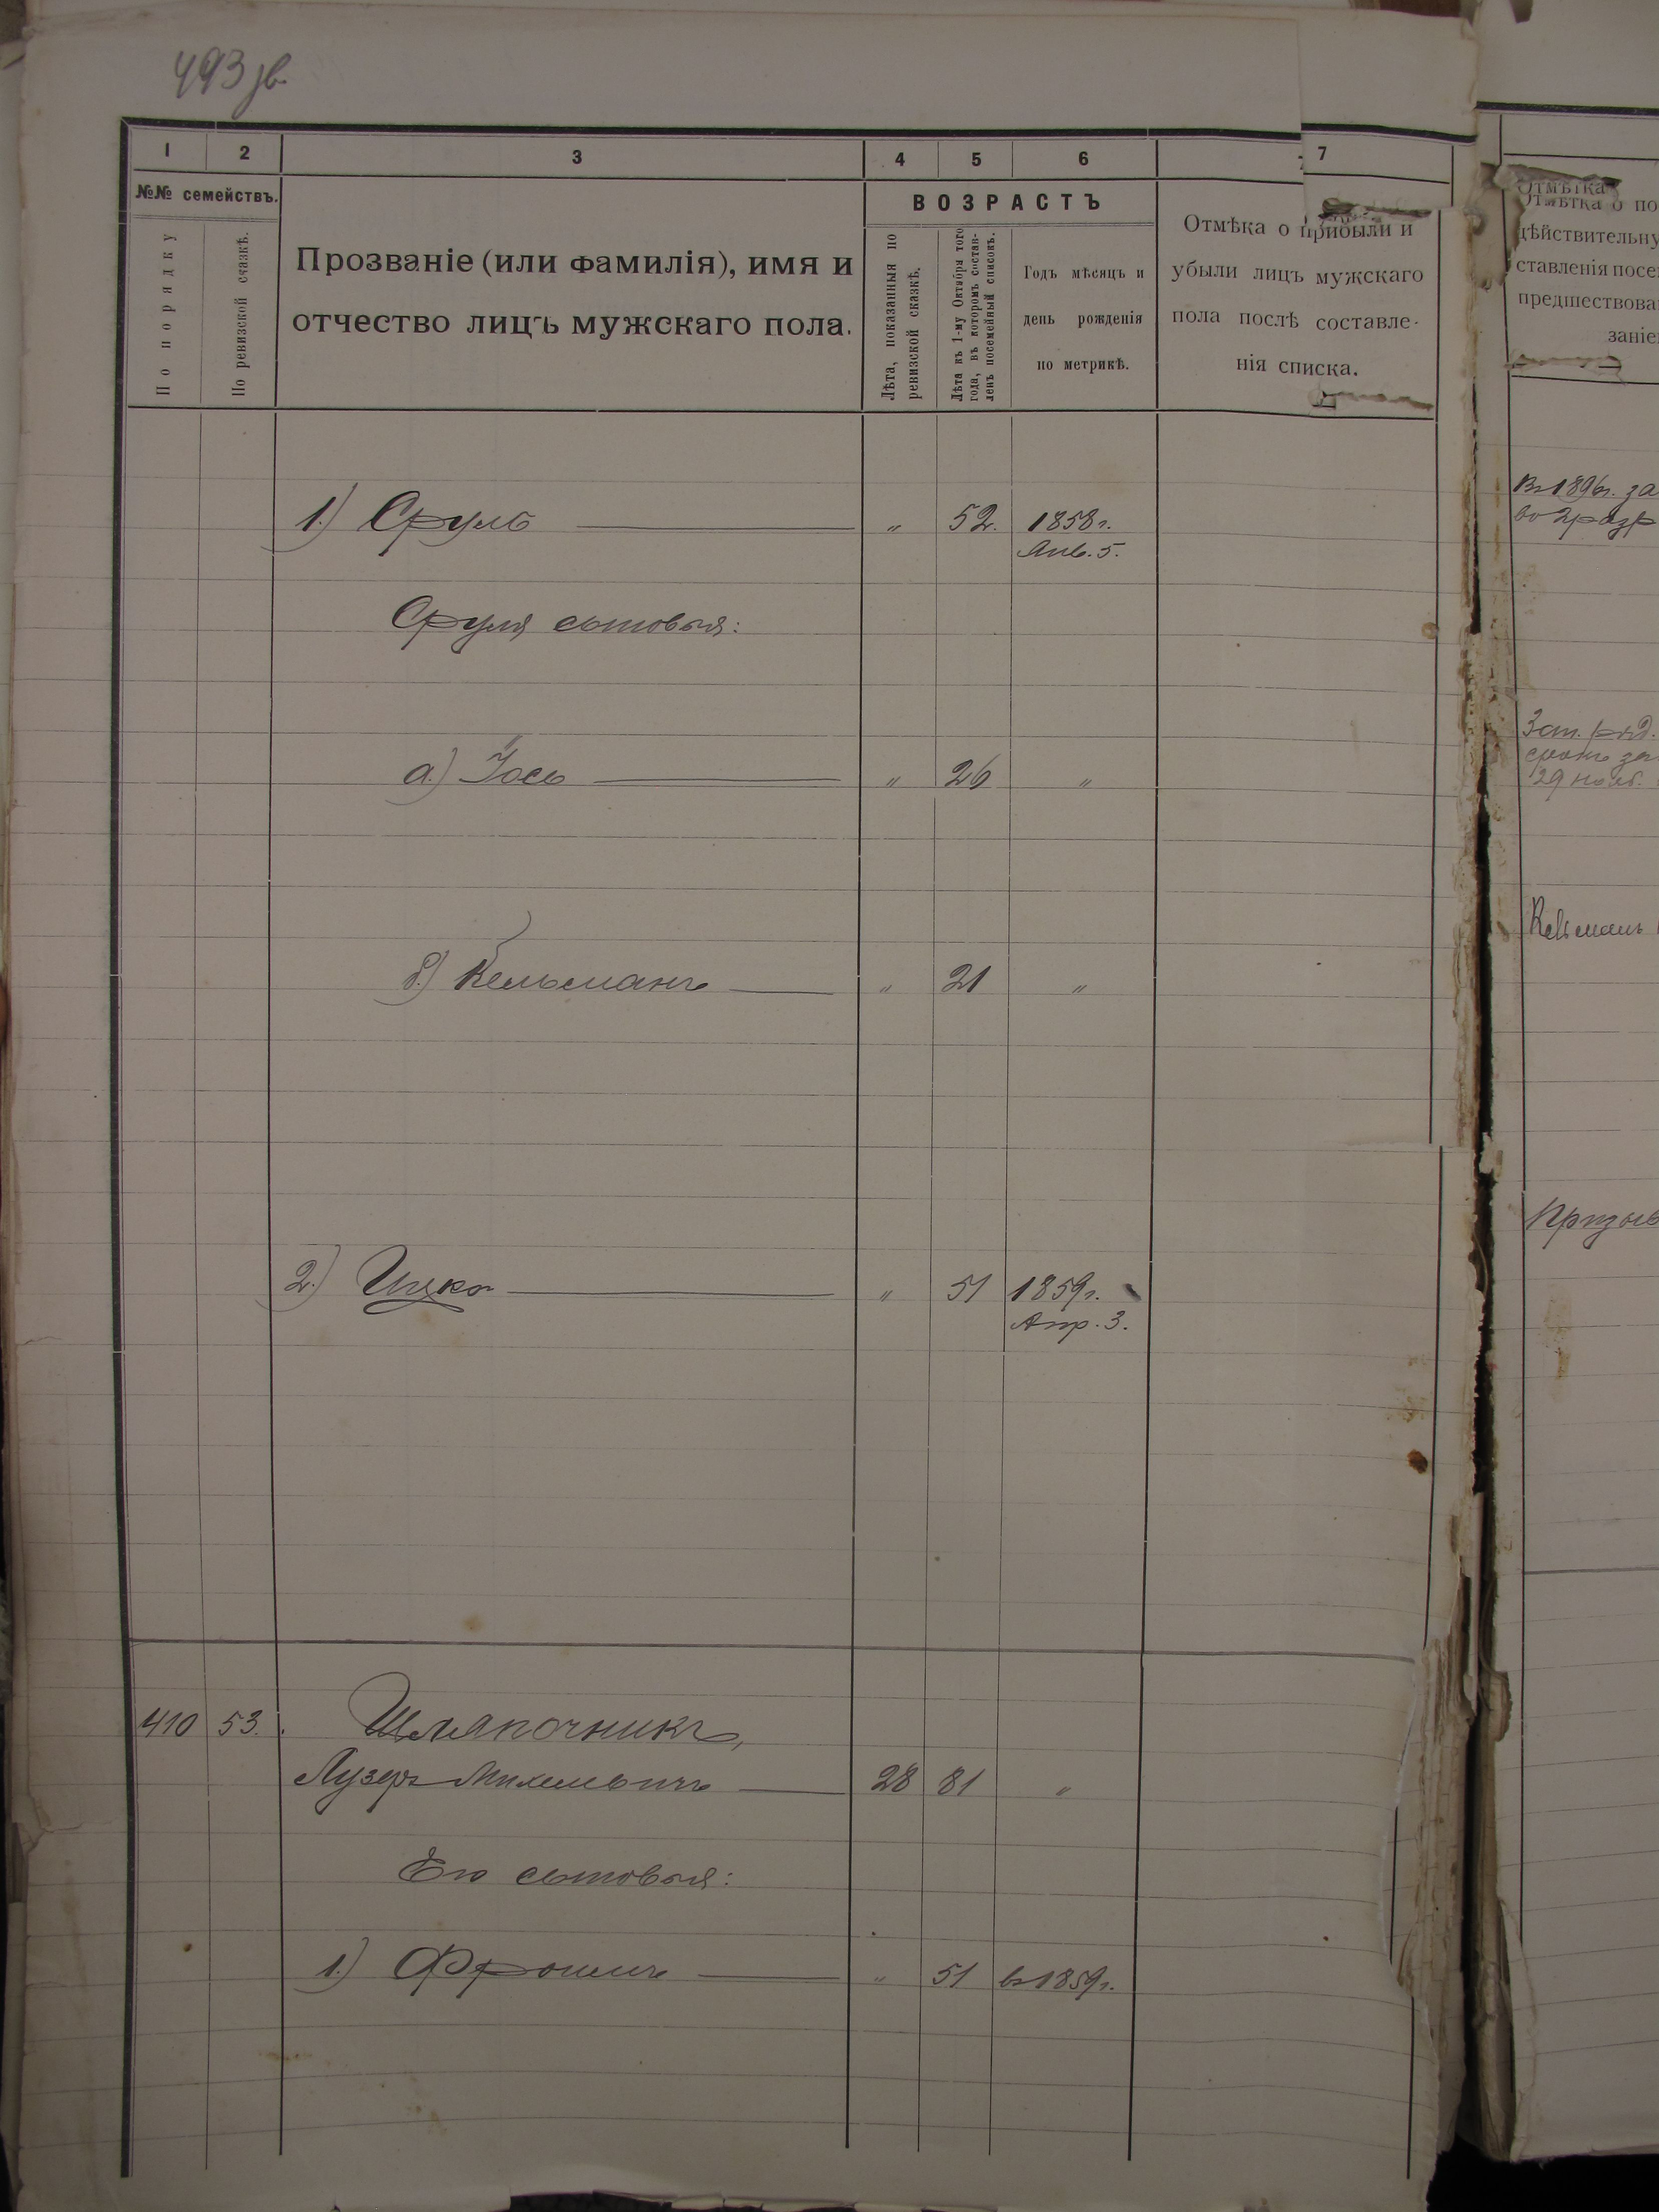 493 зв.
1 2 3 4 5 6 7
№№ семействъ.
По порядку
По ревизской сказкѣ.
Прозваніе (или фамилія), имя и
отчество лицъ мужскаго пола.
ВОЗРАСТЪ
Лѣта, показанныя по
ревизской сказкѣ.
Лѣта къ 1-му Октября того
года, въ которомъ состав-
ленъ посемейный списокъ.
Годъ мѣсяцъ и
день рожденія
по метрикѣ.
Отмѣка о прибыли и
убыли лицъ мужскаго
пола послѣ составле-
нія списка.
Отмѣтка
Отмѣтка о по
дѣйствительну
ставленія посе
предшествова
заніе
1.) Сруль " 52. 1858г.
Янв. 5.
Въ 1896г. за
во 2 разр
Сруля сыновья:
а.) Іось " 26 "
29 нояб.
б.) Кельманъ " 21 "
Кельманъ
Призыв
2.) Ицко " 51 1859г.
Апр. 3.
410 53. Шляпочникъ,
Лузеръ Михелевичъ 28 81 "
Его сыновья:
1.) Фроимъ " 51 въ 1859г.